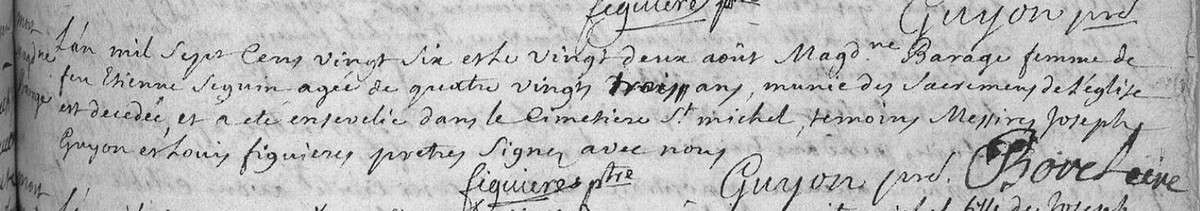 figuiere ptre Guyon pré
L'an mil sept cens vingt six et le vingt deux août Magd.ne Barage femme de
feu Etienne Seguin agée de quatre vingts trois ans, munie des sacremens de L'église
est decedée, et a eté ensevelie dans le Cimetiere St. michel, temoins Messires Joseph
Guyon et Louis figuieres pretres signez avec nous
figuieres ptre Guyon pré.